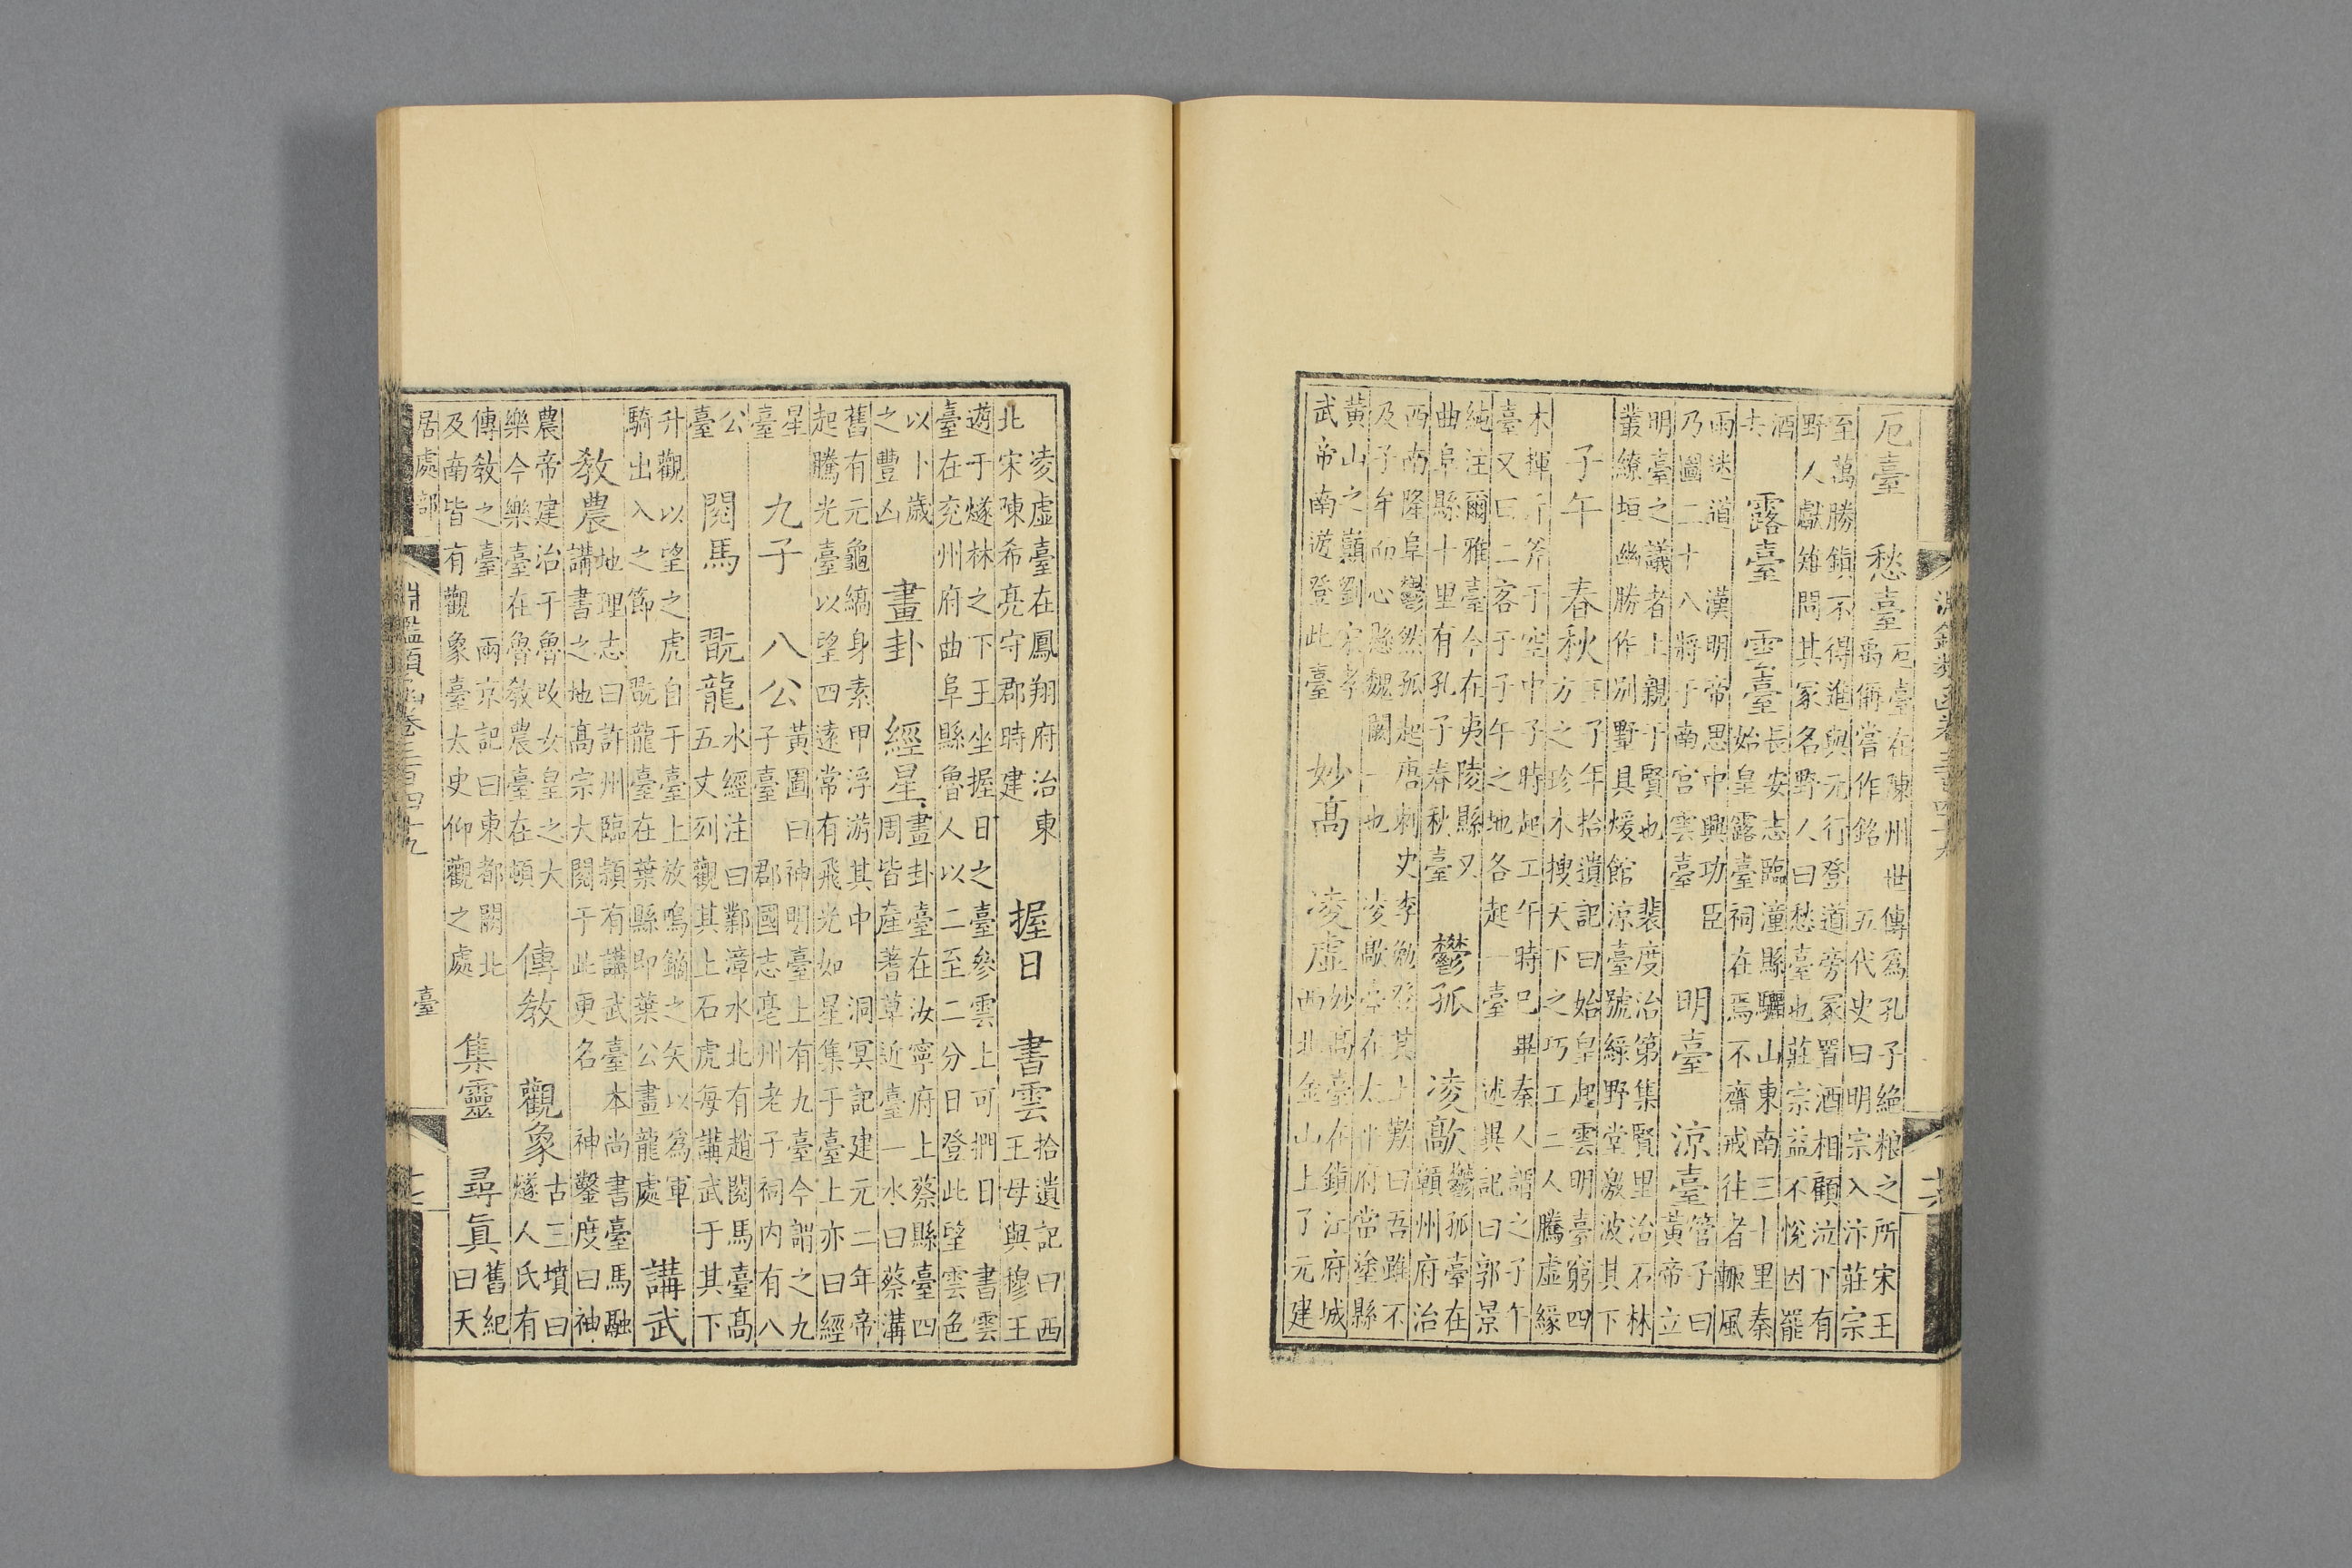 厄臺　愁臺
厄臺在陳州世傳爲孔子絶粮之所宋王
禹偁嘗作銘　五代史曰明宗入汴莊宗
至萬勝鎮不得進與元行登道旁冢置酒相顧泣下有
野人獻雉問其冢名野人曰愁臺也莊宗益不悅因罷
酒
去
露臺　雲臺
長安志臨潼縣驪山東南三十里秦
始皇露臺祠在焉不齋戒往者輒風
雨迷道　漢明帝思中興功臣
乃圖二十八將于南宮雲臺
明臺　涼臺
管子曰
黃帝立
明臺之議者上親于賢也　裴度治第集賢里治石林
叢繚垣幽勝作別墅具煖館涼臺號綠野堂激波其下
子午　春秋
王子年拾遺記曰始皇起雲明臺窮四
方之珍木搜天下之巧工二人騰虛緣
木揮斤斧于空中子時起工午時巳畢秦人謂之子午
臺又曰二客于子午之地各起一臺　述異記曰郭景
純注爾雅臺今在夷陵縣又
曲阜縣十里有孔子春秋臺
鬱孤　凌歊
鬱孤臺在
贛州府治
西南隆阜鬱然孤起唐刺史李勉登其上歎曰吾雖不
及子牟而心懸魏闕一也　凌歊臺在太平府當塗縣
黃山之巔劉宋孝
武帝南遊登此臺
妙高　凌虛
妙高臺在鎮江府城
西北金山上了元建
凌虛臺在鳳翔府治東
北宋陳希亮守郡時建
握日　書雲
拾遺記曰西
王母與穆王
遊于燧林之下王坐握日之臺參雲上可捫日　書雲
臺在兗州府曲阜縣魯人以二至二分日登此望雲色
以卜歲
之豐凶
畫卦　經星
畫卦臺在汝寧府上蔡縣臺四
周皆產蓍草近臺一水曰蔡溝
舊有元龜縞身素甲浮游其中　洞冥記建元二年帝
起騰光臺以望四遠常有飛光如星集于臺上亦曰經
星
臺
九子　八公
黃圖曰神明臺上有九臺今謂之九
子臺　郡國志亳州老子祠内有八
公
臺
閱馬　翫龍
水經注曰鄴漳水北有趙閱馬臺高
五丈列觀其上石虎每講武于其下
升觀以望之虎自于臺上放鳴鏑之矢以爲軍
騎出入之節　翫龍臺在葉縣即葉公畫龍處
講武
教農
地理志曰許州臨潁有講武臺本尚書臺馬融
講書之地高宗大閱于此更名　神鑿度曰神
農帝建治于魯改女皇之大
樂今樂臺在魯教農臺在頓
傳教　觀象
古三墳曰
燧人氏有
傳教之臺　兩京記曰東都闕北
及南皆有觀象臺太史仰觀之處
集靈　尋眞
舊紀
曰天
居處部
淵鑑類函卷三百四十九
臺